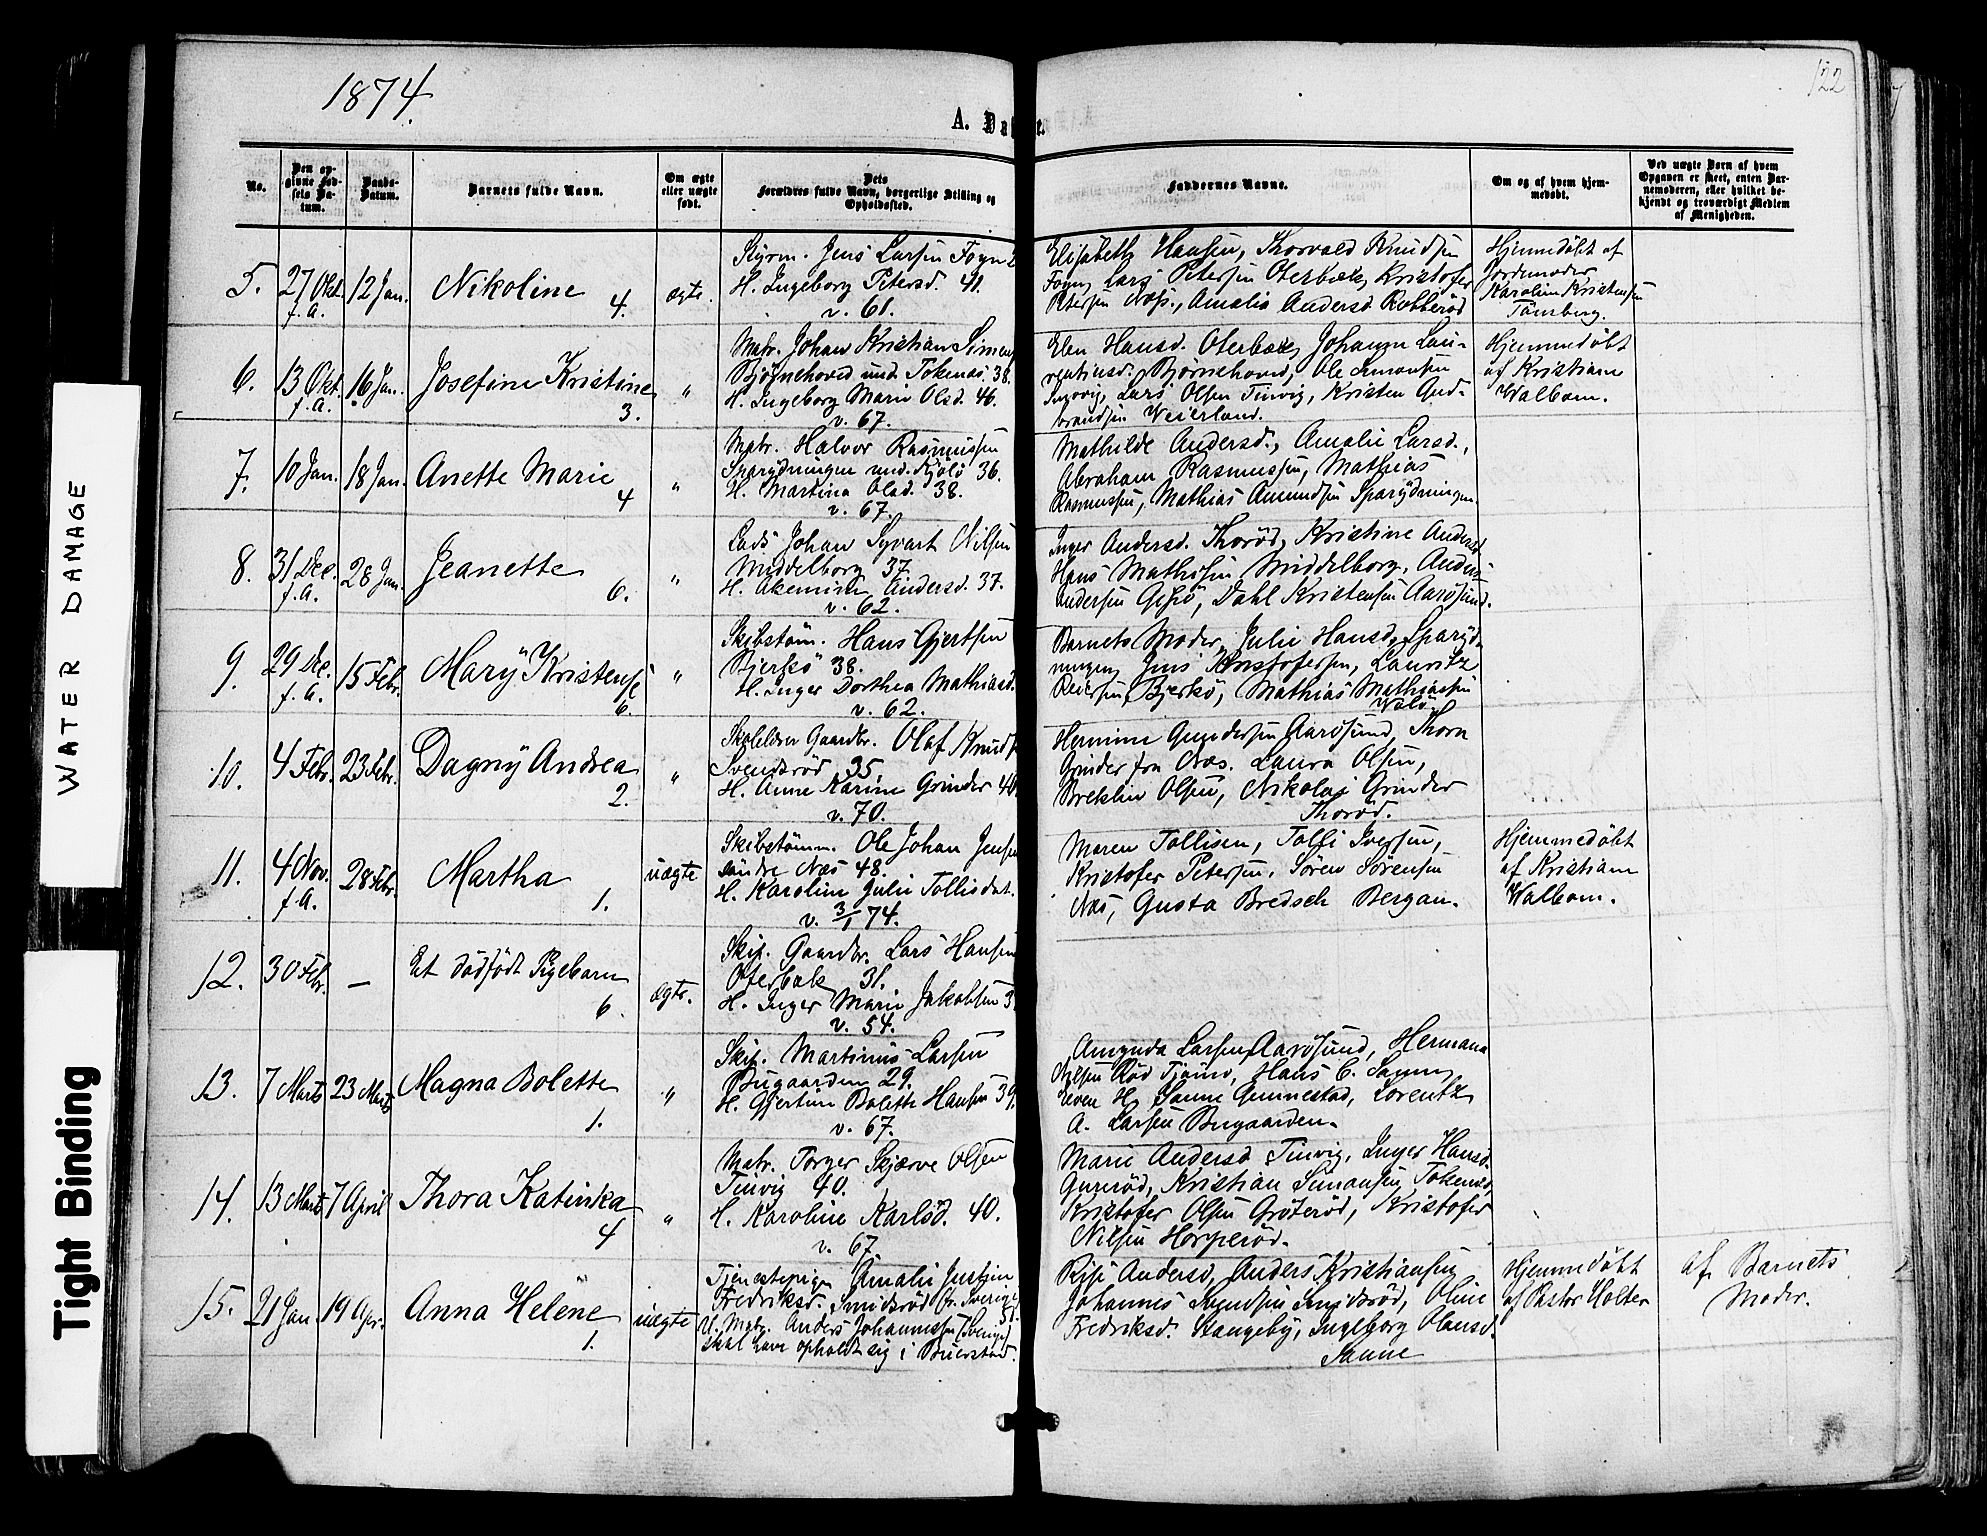 1874.
122
A. Da
No.
Den op-
givne Fød-
sels Da-
tum.
Daabs-
Datum.
Barnets fulde Navn.
Om ægte
eller uægte
født.
Dets
Forældres fulde Navn, borgerlige Stilling og
Opholdssted.
Faddernes Navne.
Om og af hvem hjem-
medøbt.
Ved uægte Børn af hvem
Opgaven er skeet, enten Bar-
nemoderen, eller hvilket be-
kjendt og troværdigt Medlem
af Menigheden.
5.
27 Okt.
f. A.
12 Jan.
Nikoline
4.
ægte.
Styrm. Jens Larsen Foyn
H. Ingeborg Petersd. 41.
v. 61.
Elisabeth Hansen, Thorvald Knudsen
Foyn, Lars Petersen Oterbæk, Kristofer
Petersen Næs, Amalia Andersd
Hjemmedøbt af
Jordmoder
Karoline Kristensen
Tønsberg.
6.
13 Okt.
f. A.
16 Jan.
Josefine Kristine
3.
"
Matr. Johan Kristian Simens
Bjørnehoved und. Tokenæs. 38.
H. Ingeborg Marie Olsd. 46.
v. 67.
Elen Hansd. Oterbæk, Johanne Lau-
rentiusd. Bjørnehoved, Ole Simonsen
Lars Olsen Tinvig, Kristen Gud-
brandsen Veierland.
Hjemmedøbt
af Kristiane
Walbom.
7.
10 Jan.
18 Jan.
Anette Marie
4
"
Matr. Halvor Rasmussen
Sparydningen und. 36.
H. Martina Olsd. 38.
v. 67.
Mathilde Andersd., Amalie Larsd.,
Abraham Rasmussen, Mathias
Rasmussen, Mathias Amundsen Sparydningen.
8.
31 Dec.
f. A.
28 Jan.
Jeanette
6.
"
Lods Johan Syvart Nilsen
Middelborg 37.
H. Andersd. 37.
v. 62.
Inger Andersd. Thorød, Kristine Andersd
Hans Mathisen Middelborg, Anders
Andersen Dahl Kristensen Aarøsund.
9.
29 Dec.
f. A.
15 Febr.
Mary Kristense
6.
"
Skibstøm. Hans Gjertsen
Bjerkø 38.
H. Inger Dorthea Mathiasd.
v. 62.
Barnets Moder, Julie Hansd. Sparyd-
ningen, Jens Kristofersen, Lauritz
Reiersen Bjerkø, Mathias Mathiassen
Valø
10.
4 Febr.
23 Febr.
Dagny Andrea
2.
"
Skolelærer Gaardbr. Olaf Knuds
Svendsrød 35.
H. Anne Karine Grinder 40.
v. 70.
Hermine Gundersen Aarøsund, Thora
Grinder fra Næs. Laura Olsen,
Olsen, Nikolai Grinder
Thorød.
11.
4 Nov.
f. A.
28 Febr.
Martha
1.
uægte
Skibstømm. Ole Johan Jensen
søndre Næs 48.
H. Karoline Julie Tollisdat.
v. 3/1 74.
Maren Tollisen, Tolli Iversen,
Kristofer Petersen, Søren Sørensen
Næs, Gusta Bredsch Bergan.
Hjemmedøbt
af Kristiane
Walbom.
12.
30 Febr.
—
Et dødfødt Pigebarn
6.
ægte.
Skip. Gaardbr. Lars Hansen
Oterbæk 31.
H. Inger Marie Jakobsen 3
v. 54.
13.
7 Marts
23 Marts
Magna Bolette
1.
"
Skip. Martinius Larsen
Bugaarden 29.
H. Gjertine Bolette Hansen 39.
v. 67.
Amynda Larsen Aarøsund, Hermana
Nilsen Rød Tjømø, Hans C. Sanne
Even H. Sanne Gunnestad, Lorentz
A. Larsen Bugaarden.
14.
13 Marts
7 April
Thora Katinka
4
"
Matr. Torger Skjærve Olsen
Tinvig 40.
H. Karoline Karlsd. 40.
v. 67.
Marie Andersd Tinvig, Inger Hansd.
Kristian Simonsen, Tokenæs,
Kristofer Olsen Grøterød, Kristofer
Nilsen Horperød.
15.
21 Jan.
19 Apr.
Anna Helene
1.
uægte
Tjenestepige Amalie Justine
Fredriksd. Smidsrød fr. Sverige
31.
U. Matr. Anders Johannessen (Sverige)
skal have opholdt sig i Buerstad.
Andersd, Anders Kristiansen
Johannes Svendsen Smidsrød, Oline
Fredriksd. Stangeby, Ingeborg Olausd.
Sanne
Hjemmedøbt
af Pastor Holter
af Barnets
Moder.
WATER DAMAGE
Tight Binding